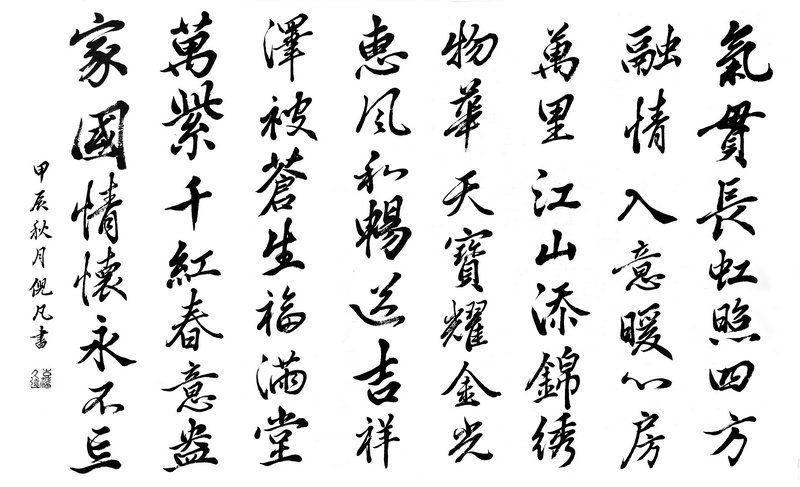 氣貫長虹照四方
融情入意暖心房
萬里江山添錦绣
物華天寶耀金光
惠风和暢送吉祥
澤被蒼生福滿堂
萬紫千紅春意盎
家國情懷永不忘
甲辰秋月倪凡書